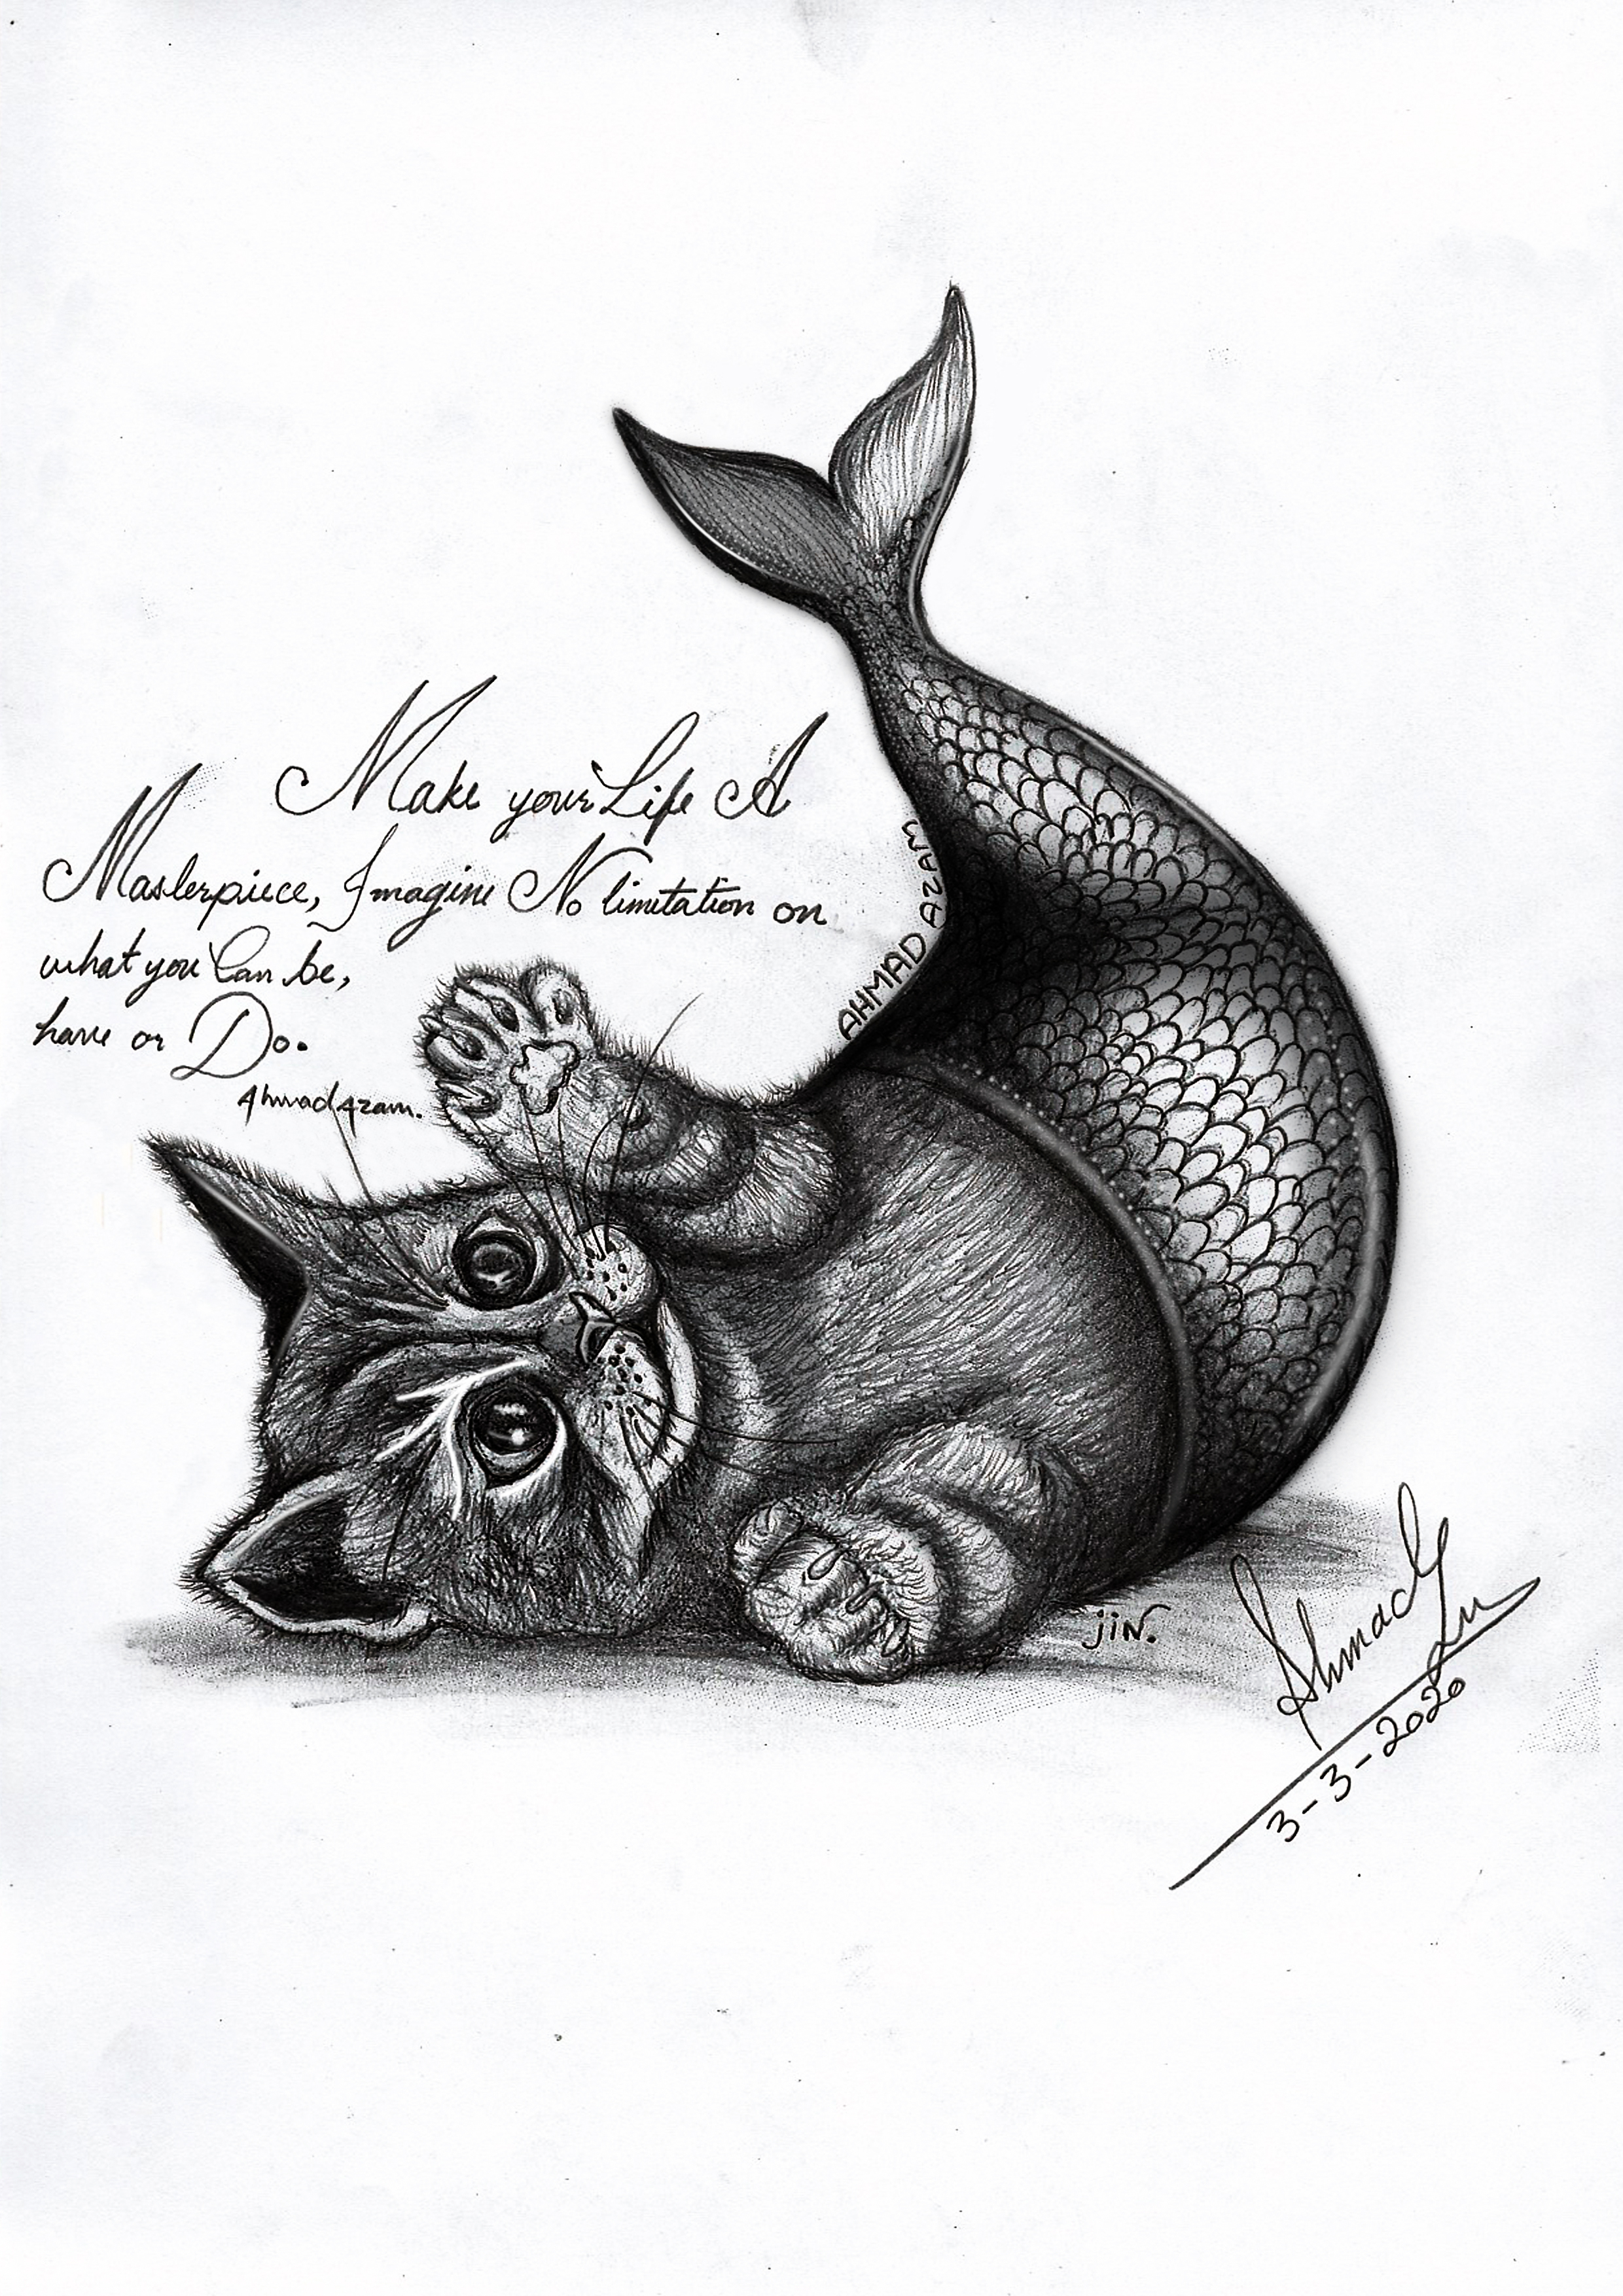 Make your Life A
Masterpiece, Imagine No limitation on
what you Can be,
have or Do.
Ahmad Azam.
AHMAD AZAM
jiN.
Ahmad
3-3-2020